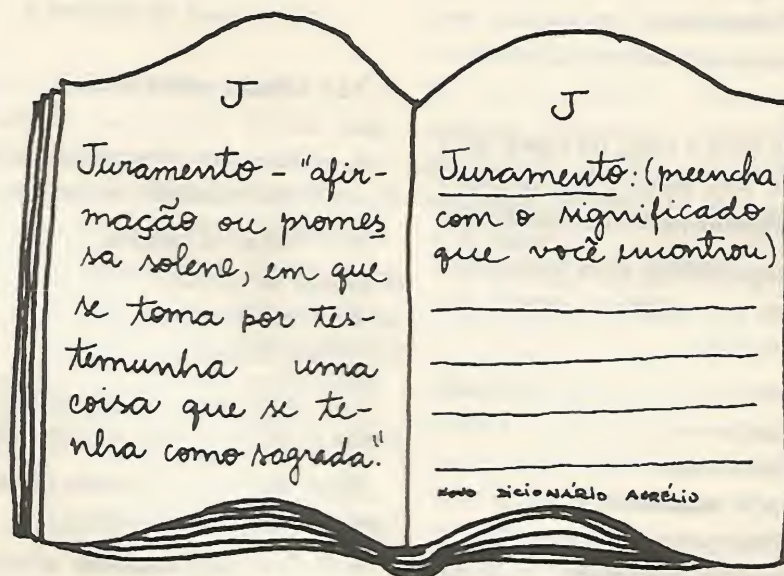 J
Juramento - "afir-
mação ou promes
sa solene, em que
se toma por tes-
temunha uma
coisa que se te-
nha como sagrada."
J
Juramento: (preencha
com o significado
que você encontrou)
NOVO DICIONÁRIO AURÉLIO